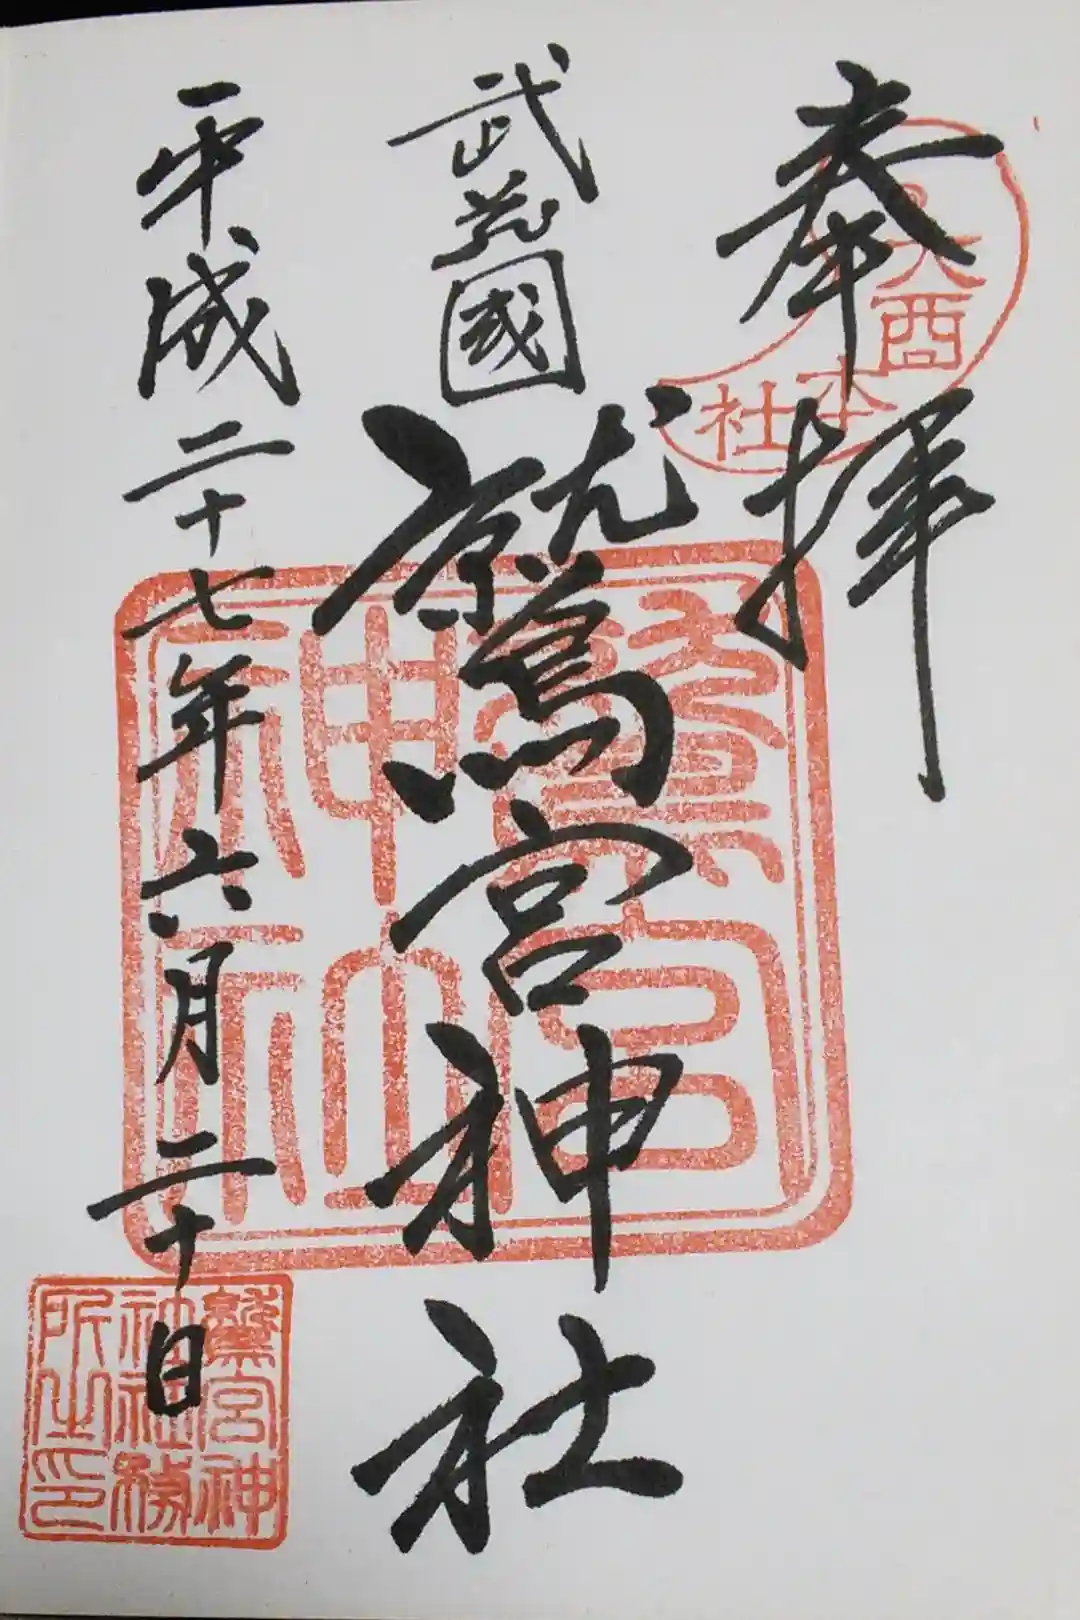 奉拝
大酉
本社
武蔵國
鷲宮神社
鷲宮
神社
平成二十七年六月二十日
鷲宮神
社社務
所之印